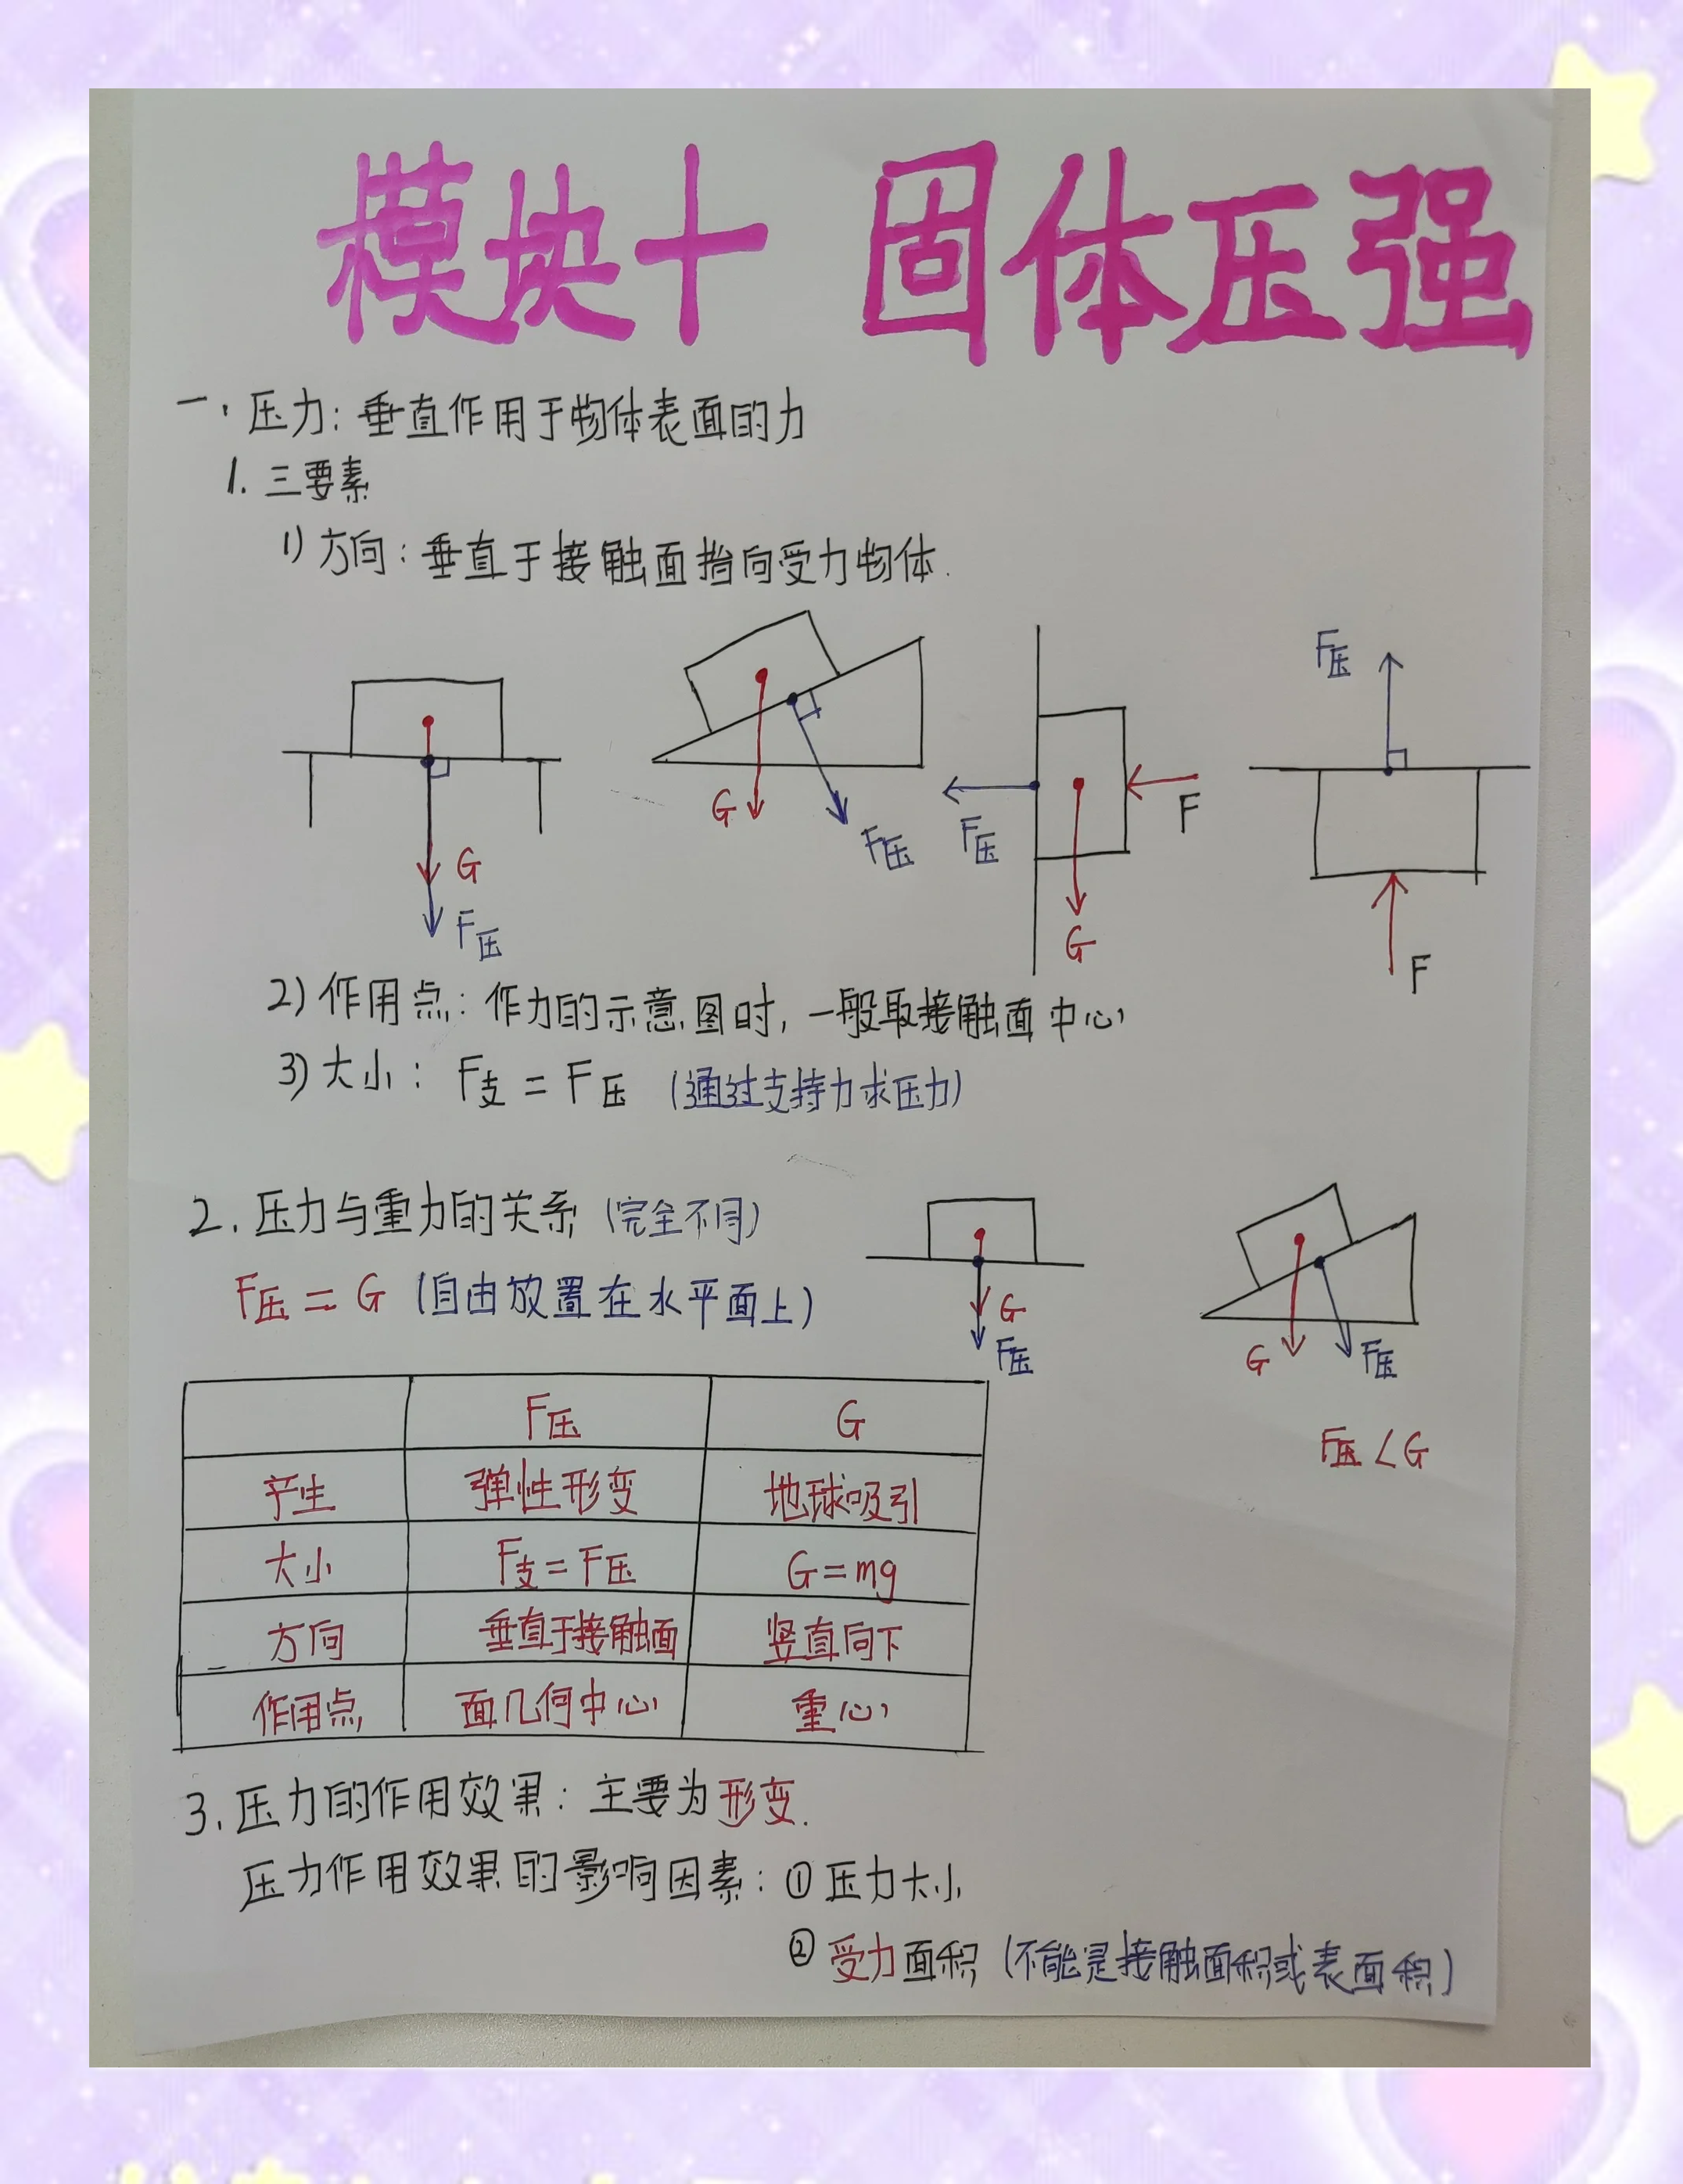 模块十 固体压强
一、压力:垂直作用于物体表面的力
1. 三要素
1) 方向:垂直于接触面指向受力物体.
G
F压
G
F压
F压
F
G
F压
F
2) 作用点:作力的示意图时,一般取接触面中心
3) 大小: F支=F压 (通过支持力求压力)
2. 压力与重力的关系 (完全不同)
F压=G (自由放置在水平面上)
G
F压
G
F压
F压<G
F压 G
产生 弹性形变 地球吸引
大小 F支=F压 G=mg
方向 垂直于接触面 竖直向下
作用点 面几何中心 重心
3. 压力的作用效果:主要为形变.
压力作用效果的影响因素:①压力大小
②受力面积 (不能是接触面积或表面积)